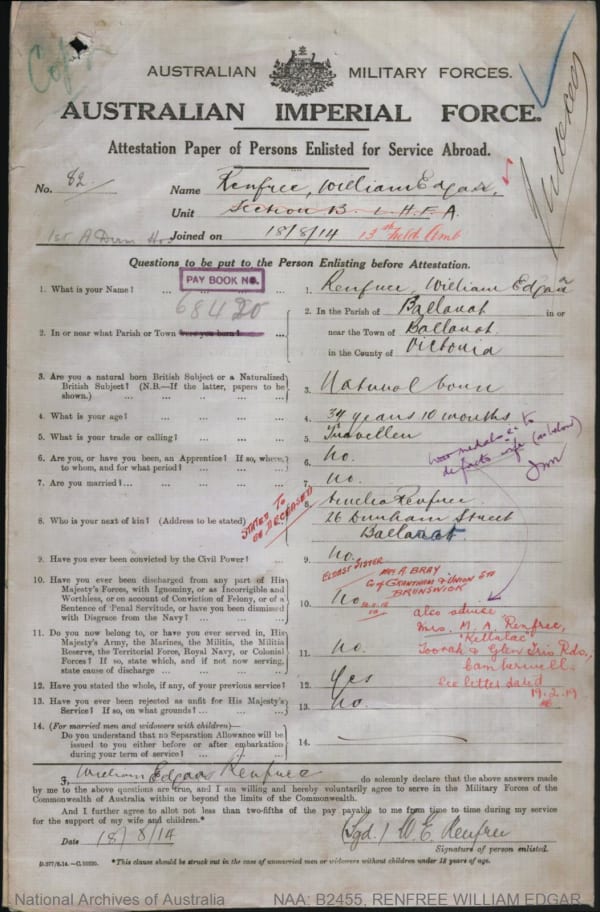 Copy
AUSTRALIAN MILITARY FORCES.
AUSTRALIAN IMPERIAL FORCE.
Attestation Paper of Persons Enlisted for Service Abroad.
No. 82 Name Renfree, William Edgar,
Unit Section B. L.H.F.A.
1st A Derm Hos Joined on 18/8/14 13th Field Amb
Questions to be put to the Person Enlisting before Attestation.
PAY BOOK NO.
68420
1. What is your Name? ... ... ... 1. Renfree, William Edgar
2. In or near what Parish or Town were you born? ... 2. In the Parish of Ballarat in or
near the Town of Ballarat
in the County of Victoria
3. Are you a natural born British Subject or a Naturalized
British Subject? (N.B.—If the latter, papers to be
shown.) ... ... ... ... ... 3. Natural born
4. What is your age? ... ... ... ... 4. 34 years 10 months
5. What is your trade or calling? ... ... ... 5. Traveller
6. Are you, or have you been, an Apprentice? If so, where,
to whom, and for what period? ... ... ... 6. No.
War medals &c to
defacto wife (as below)
7. Are you married? ... ... ... ... 7. No.
STATED TO
BE DECEASED
8. Who is your next of kin? (Address to be stated) ... 8. Amelia Renfree
26 Dunham Street
Ballarat
9. Have you ever been convicted by the Civil Power? ... 9. No.
ELDEST SISTER
MRS A BRAY
C/of GRANTHAM & UNION STS
BRUNSWICK
10. Have you ever been discharged from any part of His
Majesty's Forces, with Ignominy, or as Incorrigible and
Worthless, or on account of Conviction of Felony, or of a
Sentence of Penal Servitude, or have you been dismissed
with Disgrace from the Navy? ... ... ... 10. No
also advise
Mrs. M. A. Renfree,
"Kellalac"
Toorak & Glen Iris Rds.,
Camberwell
see letter dated
19.2.19
11. Do you now belong to, or have you ever served in, His
Majesty's Army, the Marines, the Militia, the Militia
Reserve, the Territorial Force, Royal Navy, or Colonial
Forces? If so, state which, and if not now serving,
state cause of discharge ... ... ... ... 11. No.
12. Have you stated the whole, if any, of your previous service? 12. Yes
13. Have you ever been rejected as unfit for His Majesty's
Service? If so, on what grounds? ... ... ... 13. No.
14. (For married men and widowers with children)—
Do you understand that no Separation Allowance will be
issued to you either before or after embarkation
during your term of service? ... ... ... 14.
I, William Edgar Renfree do solemnly declare that the above answers made
by me to the above questions are true, and I am willing and hereby voluntarily agree to serve in the Military Forces of the
Commonwealth of Australia within or beyond the limits of the Commonwealth.
And I further agree to allot not less than two-fifths of the pay payable to me from time to time during my service
for the support of my wife and children.*
Date 18/8/14 (Sgd.) W. E. Renfree
Signature of person enlisted.
*This clause should be struck out in the case of unmarried men or widowers without children under 18 years of age.
National Archives of Australia NAA: B2455, RENFREE WILLIAM EDGAR